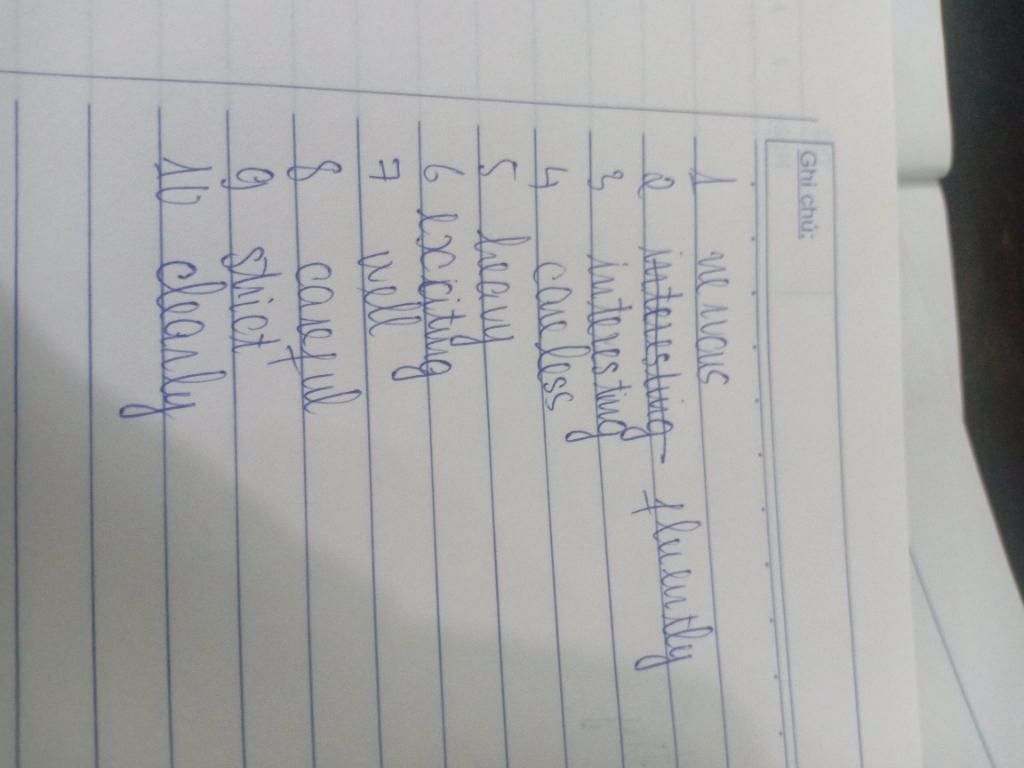 Ghi chú:
1 nervous
2 interesting fluently
3 interesting
4 careless
5 heavy
6 exciting
7 well
8 careful
9 strict
10 clearly